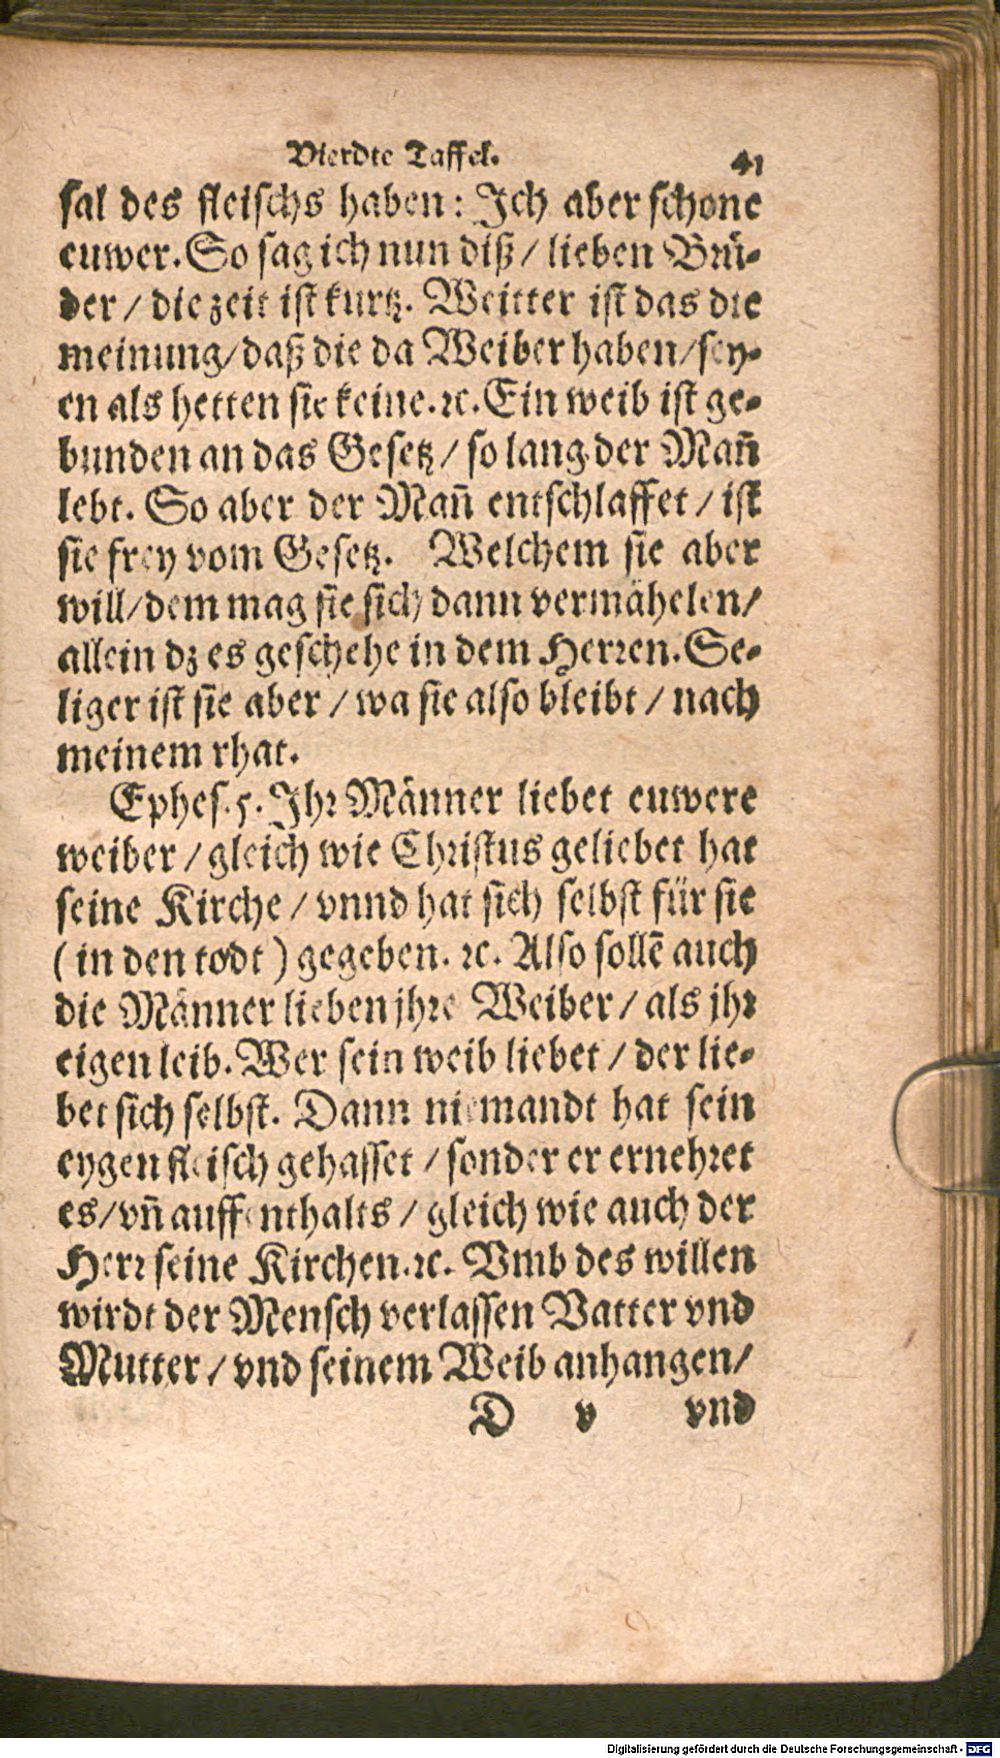 Vierdte Taffel. 41
sal des fleischs haben: Jch aber schone
euwer. So sag ich nun diß / lieben Brü-
der / die zeit ist kurtz. Weitter ist das die
meinung / daß die da Weiber haben / sey-
en als hetten sie keine. ꝛc. Ein weib ist ge-
bunden an das Gesetz / so lang der Mañ
lebt. So aber der Mañ entschlaffet / ist
sie frey vom Gesetz. Welchem sie aber
will / dem mag sie sich dann vermähelen /
allein dz es geschehe in dem Herꝛen. Se-
liger ist sie aber / wa sie also bleibt / nach
meinem rhat.
Ephes. 5. Jhꝛ Männer liebet euwere
weiber / gleich wie Chꝛistus geliebet hat
seine Kirche / vnnd hat sich selbst für sie
( in den todt ) gegeben. ꝛc. Also sollē auch
die Männer lieben jhꝛe Weiber / als jhꝛ
eigen leib. Wer sein weib liebet / der lie-
bet sich selbst. Dann niemandt hat sein
eygen fleisch gehasset / sonder er ernehꝛet
es / vñ auffenthalts / gleich wie auch der
Herꝛ seine Kirchen. ꝛc. Vmb des willen
wirdt der Mensch verlassen Vatter vnd
Mutter / vnd seinem Weib anhangen /
D v vnd
Digitalisierung gefördert durch die Deutsche Forschungsgemeinschaft - DFG